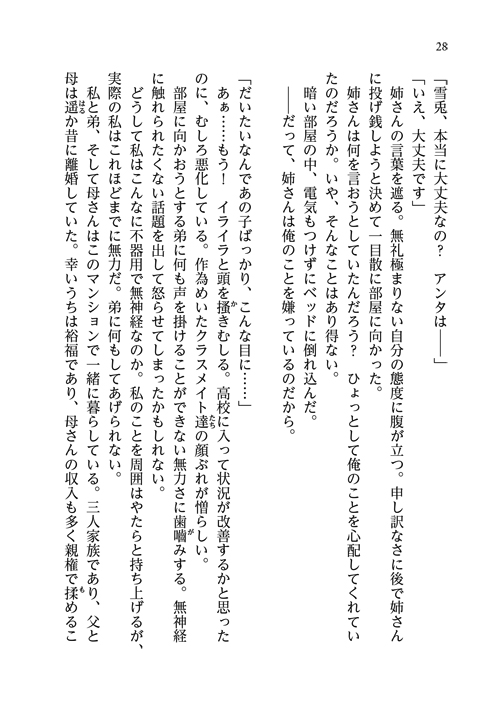 28
「雪兎、本当に大丈夫なの？　アンタは――」
「いえ、大丈夫です」
　姉さんの言葉を遮る。無礼極まりない自分の態度に腹が立つ。申し訳なさに後で姉さん
に投げ銭しようと決めて一目散に部屋に向かった。
　姉さんは何を言おうとしていたんだろう？　ひょっとして俺のことを心配してくれてい
たのだろうか。いや、そんなことはあり得ない。
　暗い部屋の中、電気もつけずにベッドに倒れ込んだ。
　――だって、姉さんは俺のことを嫌っているのだから。
「だいたいなんであの子ばっかり、こんな目に……」
　あぁ……もう！　イライラと頭を掻きむしる。高校に入って状況が改善するかと思った
のに、むしろ悪化している。作為めいたクラスメイト達の顔ぶれが憎らしい。
　部屋に向かおうとする弟に何も声を掛けることができない無力さに歯嚙みする。無神経
に触れられたくない話題を出して怒らせてしまったかもしれない。
　どうして私はこんなに不器用で無神経なのか。私のことを周囲はやたらと持ち上げるが、
実際の私はこれほどまでに無力だ。弟に何もしてあげられない。
　私と弟、そして母さんはこのマンションで一緒に暮らしている。三人家族であり、父と
母は遥か昔に離婚していた。幸いうちは裕福であり、母さんの収入も多く親権で揉めるこ